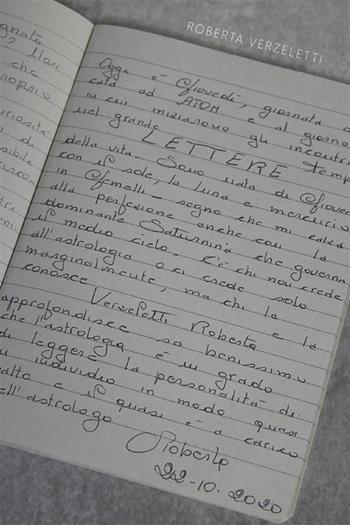 ROBERTA VERZELETTI
gnata
? Mou
che
noprio
Oggi è Giovedì, giornata
cata ad ATOM e al giorno
in cui iniziarono gli incontri
nel grande Temp
LETTERE
della vita. Sono nata di Giove
con il sole, la luna e mercurio
in Gemelli - segno che mi calza
alla perfezione anche con la
dominante Saturnina che governa
il medio cielo. C'è chi non crede
all'astrologia o ci crede solo
marginalmente, ma chi la
conosce e la
Verzeletti Roberta
approfondisce sa benissimo
che l'astrologia è in grado
di leggere la personalità di
un individuo in modo quasi
esatto e il quasi è a carico
dell'astrologo
Roberta
22-10.2020